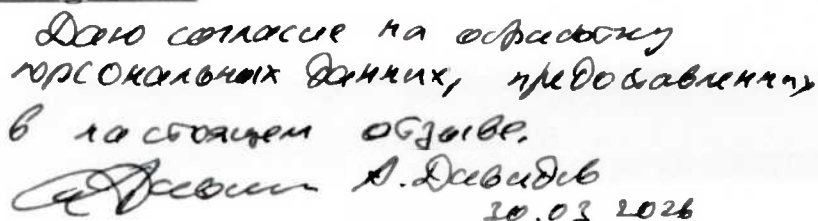 Даю согласие на обработку
персональных данных, предоставленных
в настоящем отзыве.
А. Давыдов
30.03 2026